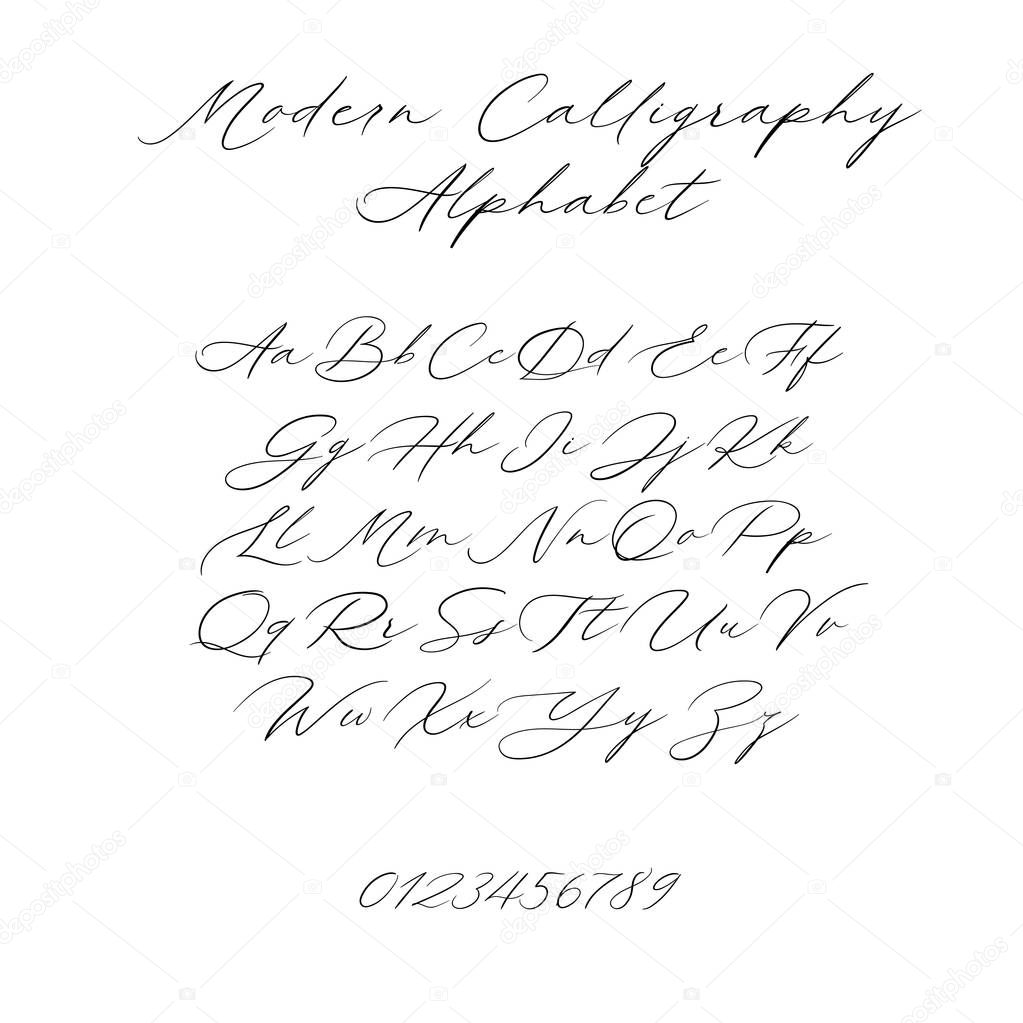 Modern Calligraphy
Alphabet
Aa Bb Cc Dd Ee Ff
Gg Hh Ii Jj Kk
Ll Mm Nn Oo Pp
Qq Rr Ss Tt Uu Vv
Ww Xx Yy Zz
0123456789
depositphotos